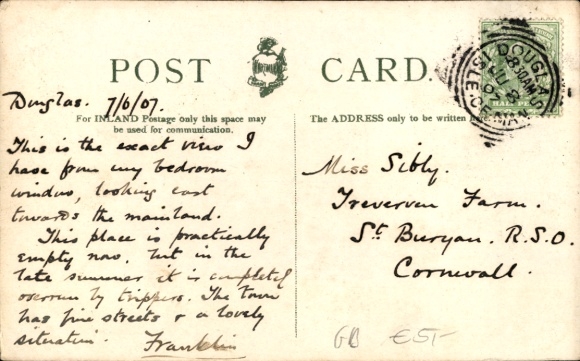 POST CARD.
Douglas. 7/6/07.
For INLAND Postage only this space may
be used for communication.
This is the exact view I
have from my bedroom
window, looking east
towards the mainland.
This place is practically
empty now, but in the
late summer it is completely
overrun by trippers. The town
has fine streets & a lovely
situation. Franklin
The ADDRESS only to be written here.
Miss Sibly.
Treverven Farm.
St Buryan. R.S.O.
Cornwall.
DOUGLAS
ISLE OF MAN
8.30AM
HALF PE
GB €5-